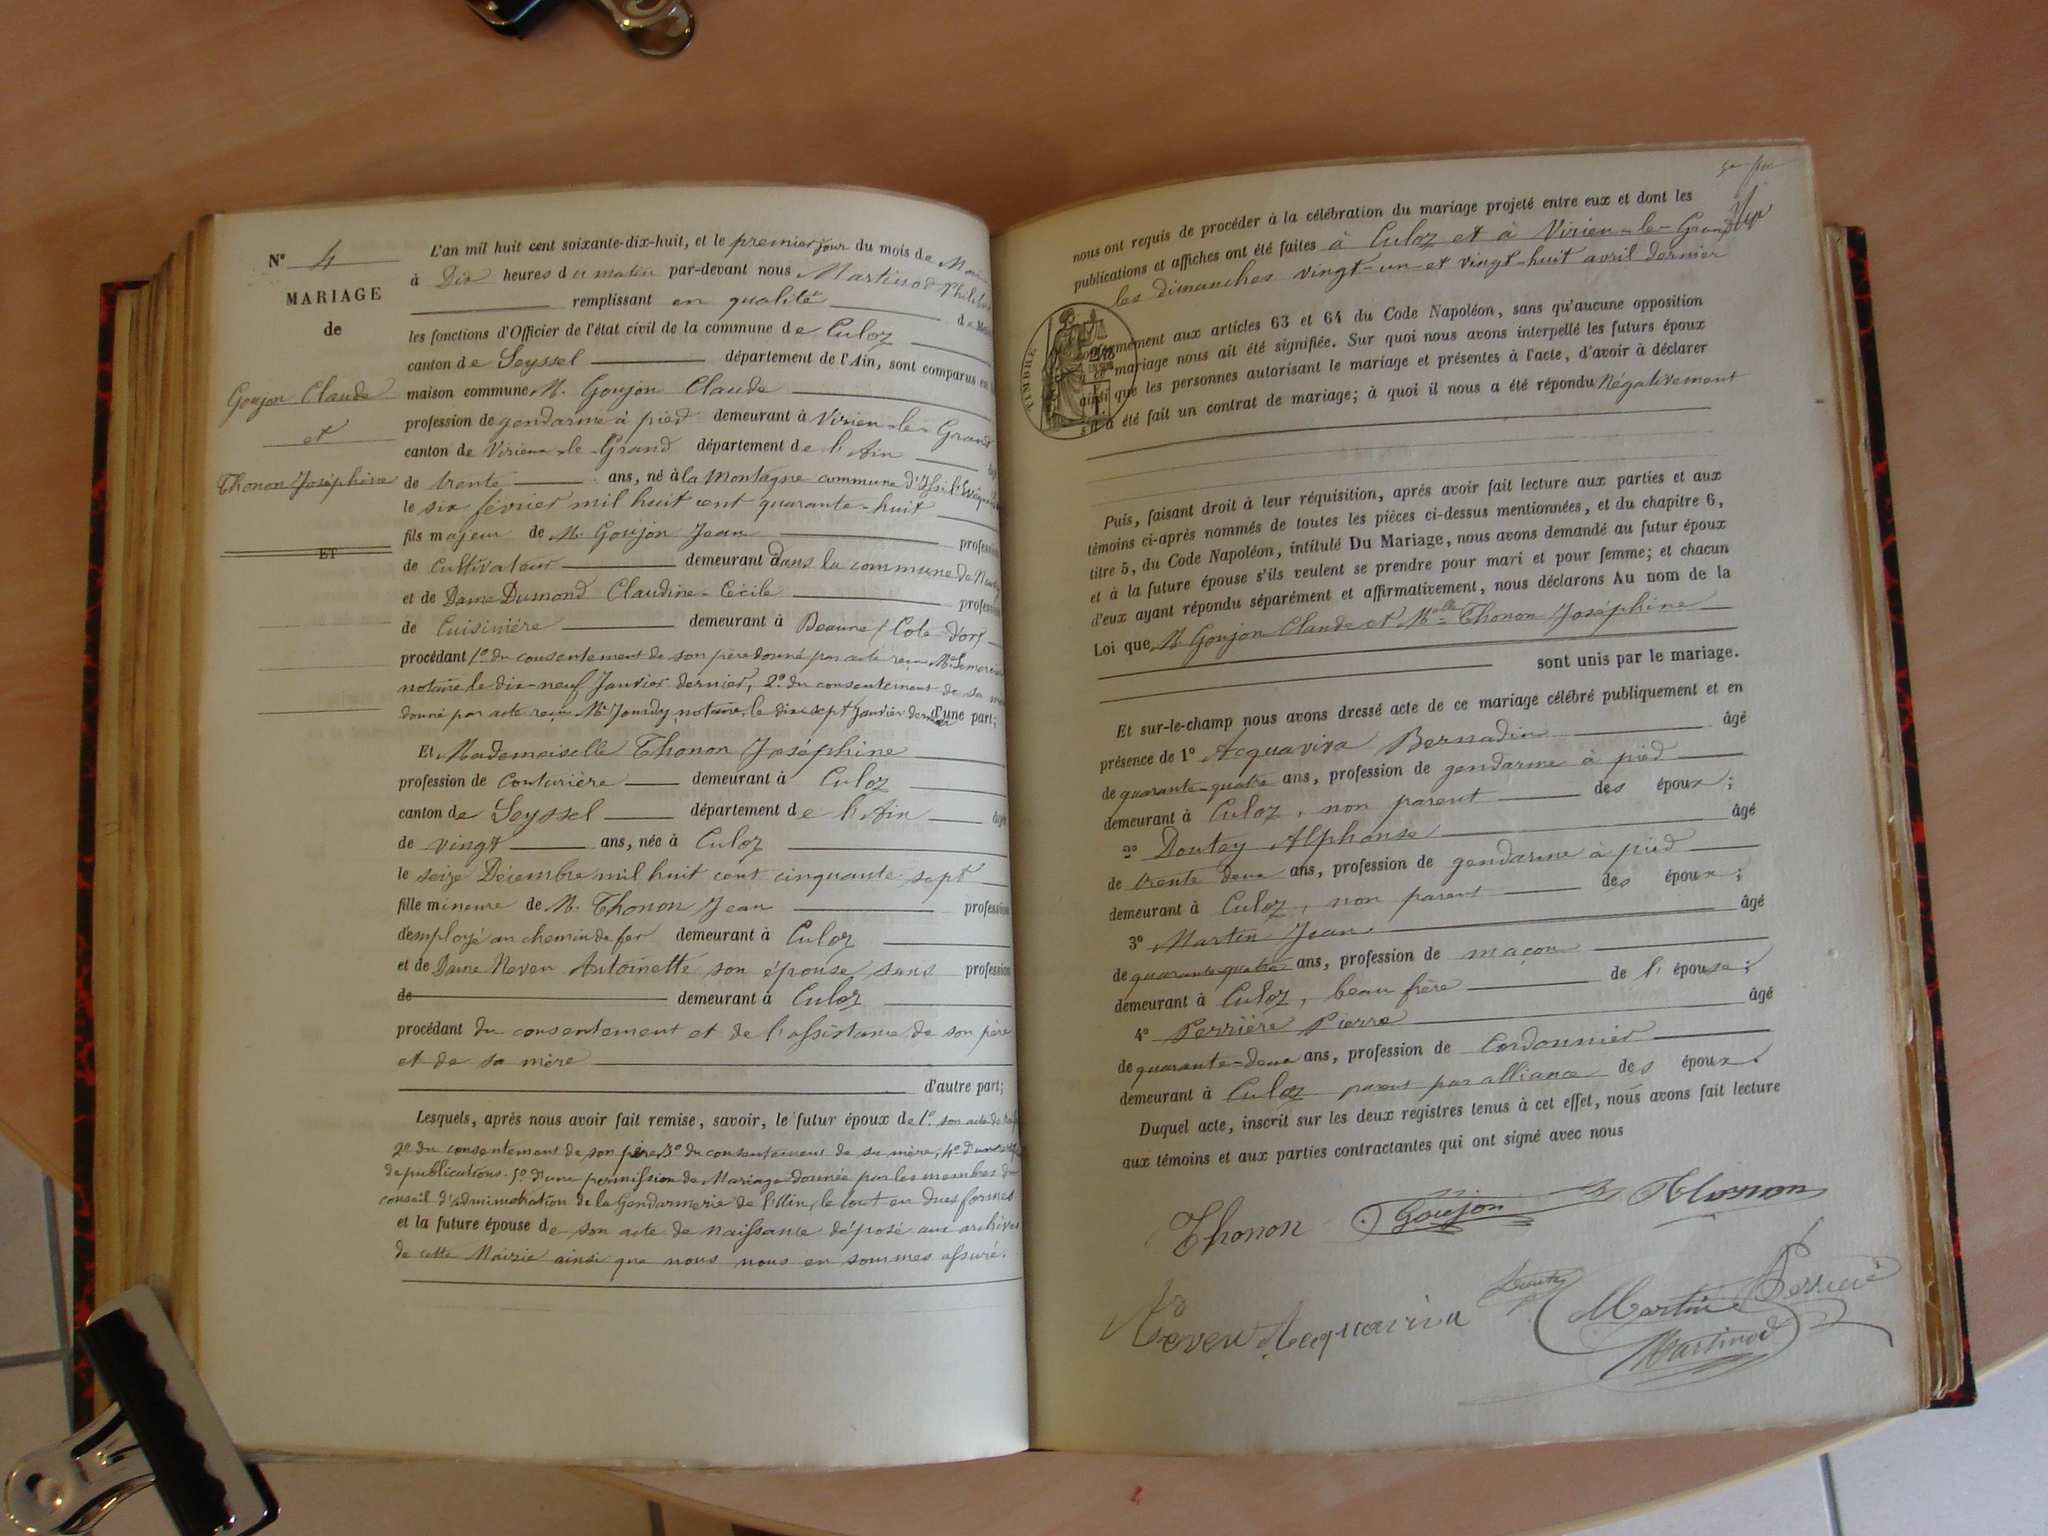 N° 4
MARIAGE
de
Goujon Claude
et
Thonon Joséphine
ET
L'an mil huit cent soixante-dix-huit, et le premier jour du mois de
à Dix heures du matin par-devant nous Martinod
remplissant en qualité de
les fonctions d'Officier de l'état civil de la commune de Culoz
canton de Seyssel département de l'Ain, sont comparus en
maison commune M. Goujon Claude
profession de gendarme à pied demeurant à Virieu-le-Grand
canton de Virieu-le-Grand département de l'Ain
de trente ans, né à la Montagne commune d'Issi-l'Evêque
le six février mil huit cent quarante-huit
fils majeur de M. Goujon Jean profession
de Cultivateur demeurant Dans la commune de
et de Dame Dumond Claudine-Cécile profession
de Cuisinière demeurant à Beaune (Cote d'or)
procédant 1° du consentement de son père donné par acte reçu Me
notaire le dix-neuf Janvier dernier, 2° du consentement de sa
donné par acte reçu Me Jourdy notaire, le dix sept Janvier dernier d'une part;
Et Mademoiselle Thonon Joséphine
profession de Couturière demeurant à Culoz
canton de Seyssel département de l'Ain âgé
de vingt ans, née à Culoz
le seize Décembre mil huit cent cinquante-sept
fille mineure de M. Thonon Jean profession
d'employé au chemin de fer demeurant à Culoz
et de Dame Neven Antoinette son épouse, sans profession
de demeurant à Culoz
procédant du consentement et de l'assistance de son père
et de sa mère
d'autre part;
Lesquels, après nous avoir fait remise, savoir, le futur époux de 1° son acte de
2° du consentement de son père, 3° du consentement de sa mère; 4° d'un
de publications. 5° d'une permission de Mariage donnée par les membres du
conseil d'administration de la Gendarmerie de l'Ain, le tout en dues formes
et la future épouse de son acte de naissance déposé aux archives
de cette Mairie ainsi que nous nous en sommes assuré.
nous ont requis de procéder à la célébration du mariage projeté entre eux et dont les
publications et affiches ont été faites à Culoz et à Virieu-le-Grand
les dimanches vingt-un et vingt-huit avril dernier
TIMBRE
conformément aux articles 63 et 64 du Code Napoléon, sans qu'aucune opposition
à ce mariage nous ait été signifiée. Sur quoi nous avons interpellé les futurs époux
ainsi que les personnes autorisant le mariage et présentes à l'acte, d'avoir à déclarer
s'il a été fait un contrat de mariage; à quoi il nous a été répondu Négativement
Puis, faisant droit à leur réquisition, après avoir fait lecture aux parties et aux
témoins ci-après nommés de toutes les pièces ci-dessus mentionnées, et du chapitre 6,
titre 5, du Code Napoléon, intitulé Du Mariage, nous avons demandé au futur époux
et à la future épouse s'ils veulent se prendre pour mari et pour femme; et chacun
d'eux ayant répondu séparément et affirmativement, nous déclarons Au nom de la
Loi que M. Goujon Claude et Melle Thonon Joséphine
sont unis par le mariage.
Et sur-le-champ nous avons dressé acte de ce mariage célébré publiquement et en
présence de 1° Acquaviva Bernadin âgé
de quarante-quatre ans, profession de gendarme à pied
demeurant à Culoz, non parent des époux;
2° Doutey Alphonse âgé
de trente deux ans, profession de gendarme à pied
demeurant à Culoz, non parent des époux;
3° Martin Jean âgé
de quarante-quatre ans, profession de maçon
demeurant à Culoz, beau frère de l'épouse;
4° Perrière Pierre âgé
de quarante-deux ans, profession de Cordonnier
demeurant à Culoz parent par alliance des époux.
Duquel acte, inscrit sur les deux registres tenus à cet effet, nous avons fait lecture
aux témoins et aux parties contractantes qui ont signé avec nous
Thonon Goujon Thonon
Neven Acquaviva Doutey Martin Perrière
Martinod